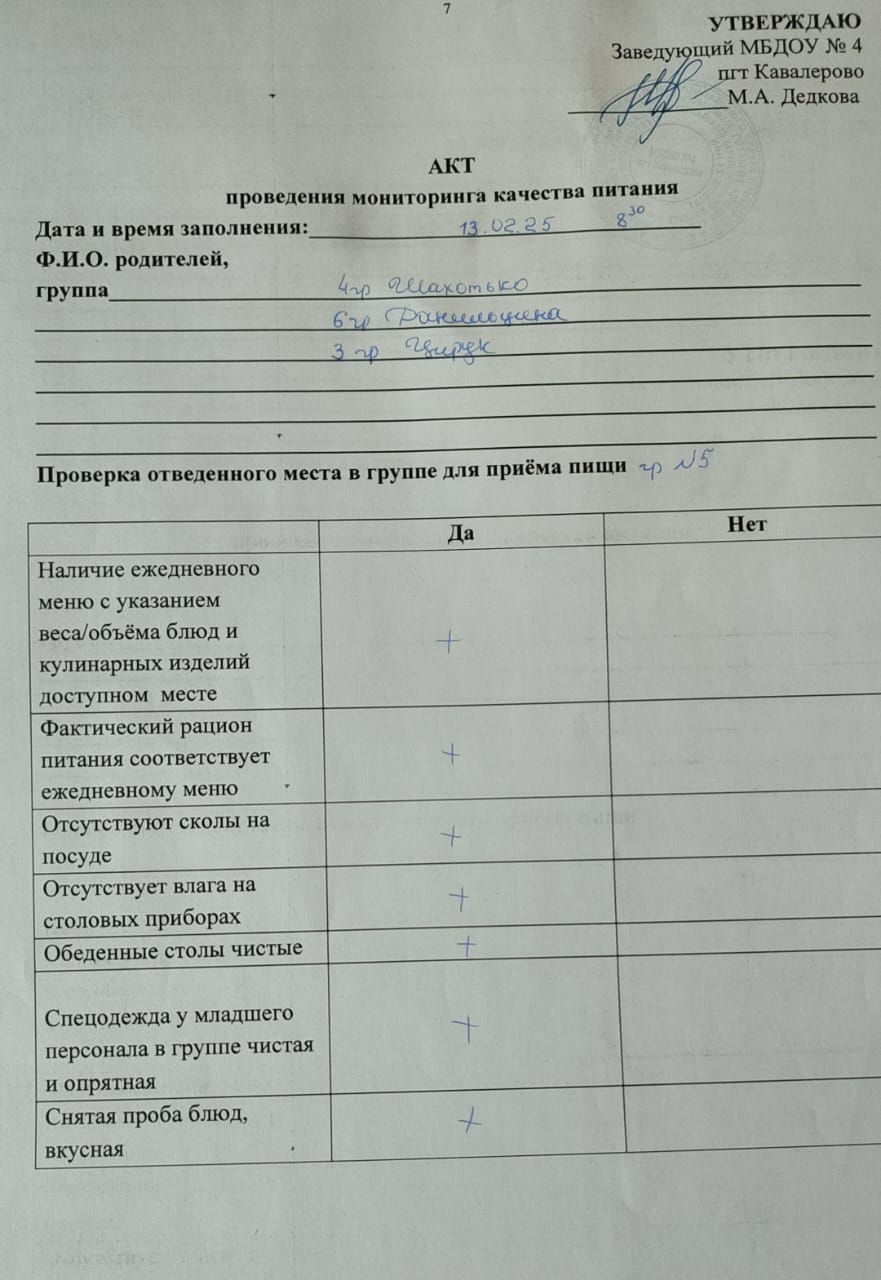 7
УТВЕРЖДАЮ
Заведующий МБДОУ № 4
пгт Кавалерово
М.А. Дедкова
АКТ
проведения мониторинга качества питания
Дата и время заполнения: 13.02.25 8 30
Ф.И.О. родителей,
группа 4гр Шахотько
6гр Данильцина
3 гр Цирук
Проверка отведенного места в группе для приёма пищи гр №5
Да Нет
Наличие ежедневного
меню с указанием
веса/объёма блюд и
кулинарных изделий
доступном месте
+
Фактический рацион
питания соответствует
ежедневному меню
+
Отсутствуют сколы на
посуде
+
Отсутствует влага на
столовых приборах
+
Обеденные столы чистые +
Спецодежда у младшего
персонала в группе чистая
и опрятная
+
Снятая проба блюд,
вкусная
+